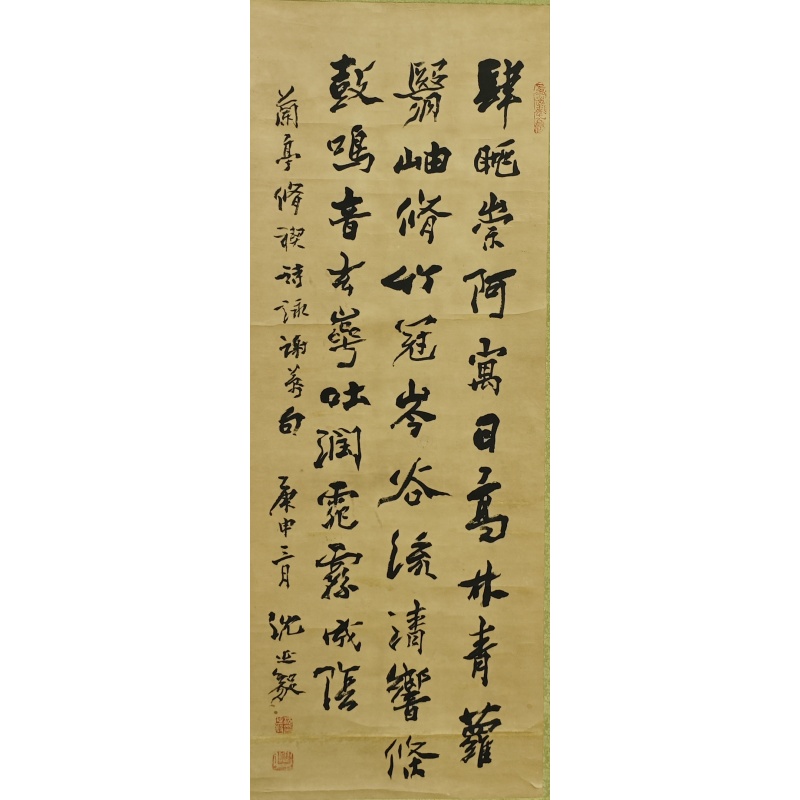 肆眺崇阿寓目高林青蘿
翳岫脩竹冠岑谷流清響條
鼓鳴音玄崿吐潤霏霧成陰
蘭亭脩禊詩詠謝萬句 庚申三月 沈延毅